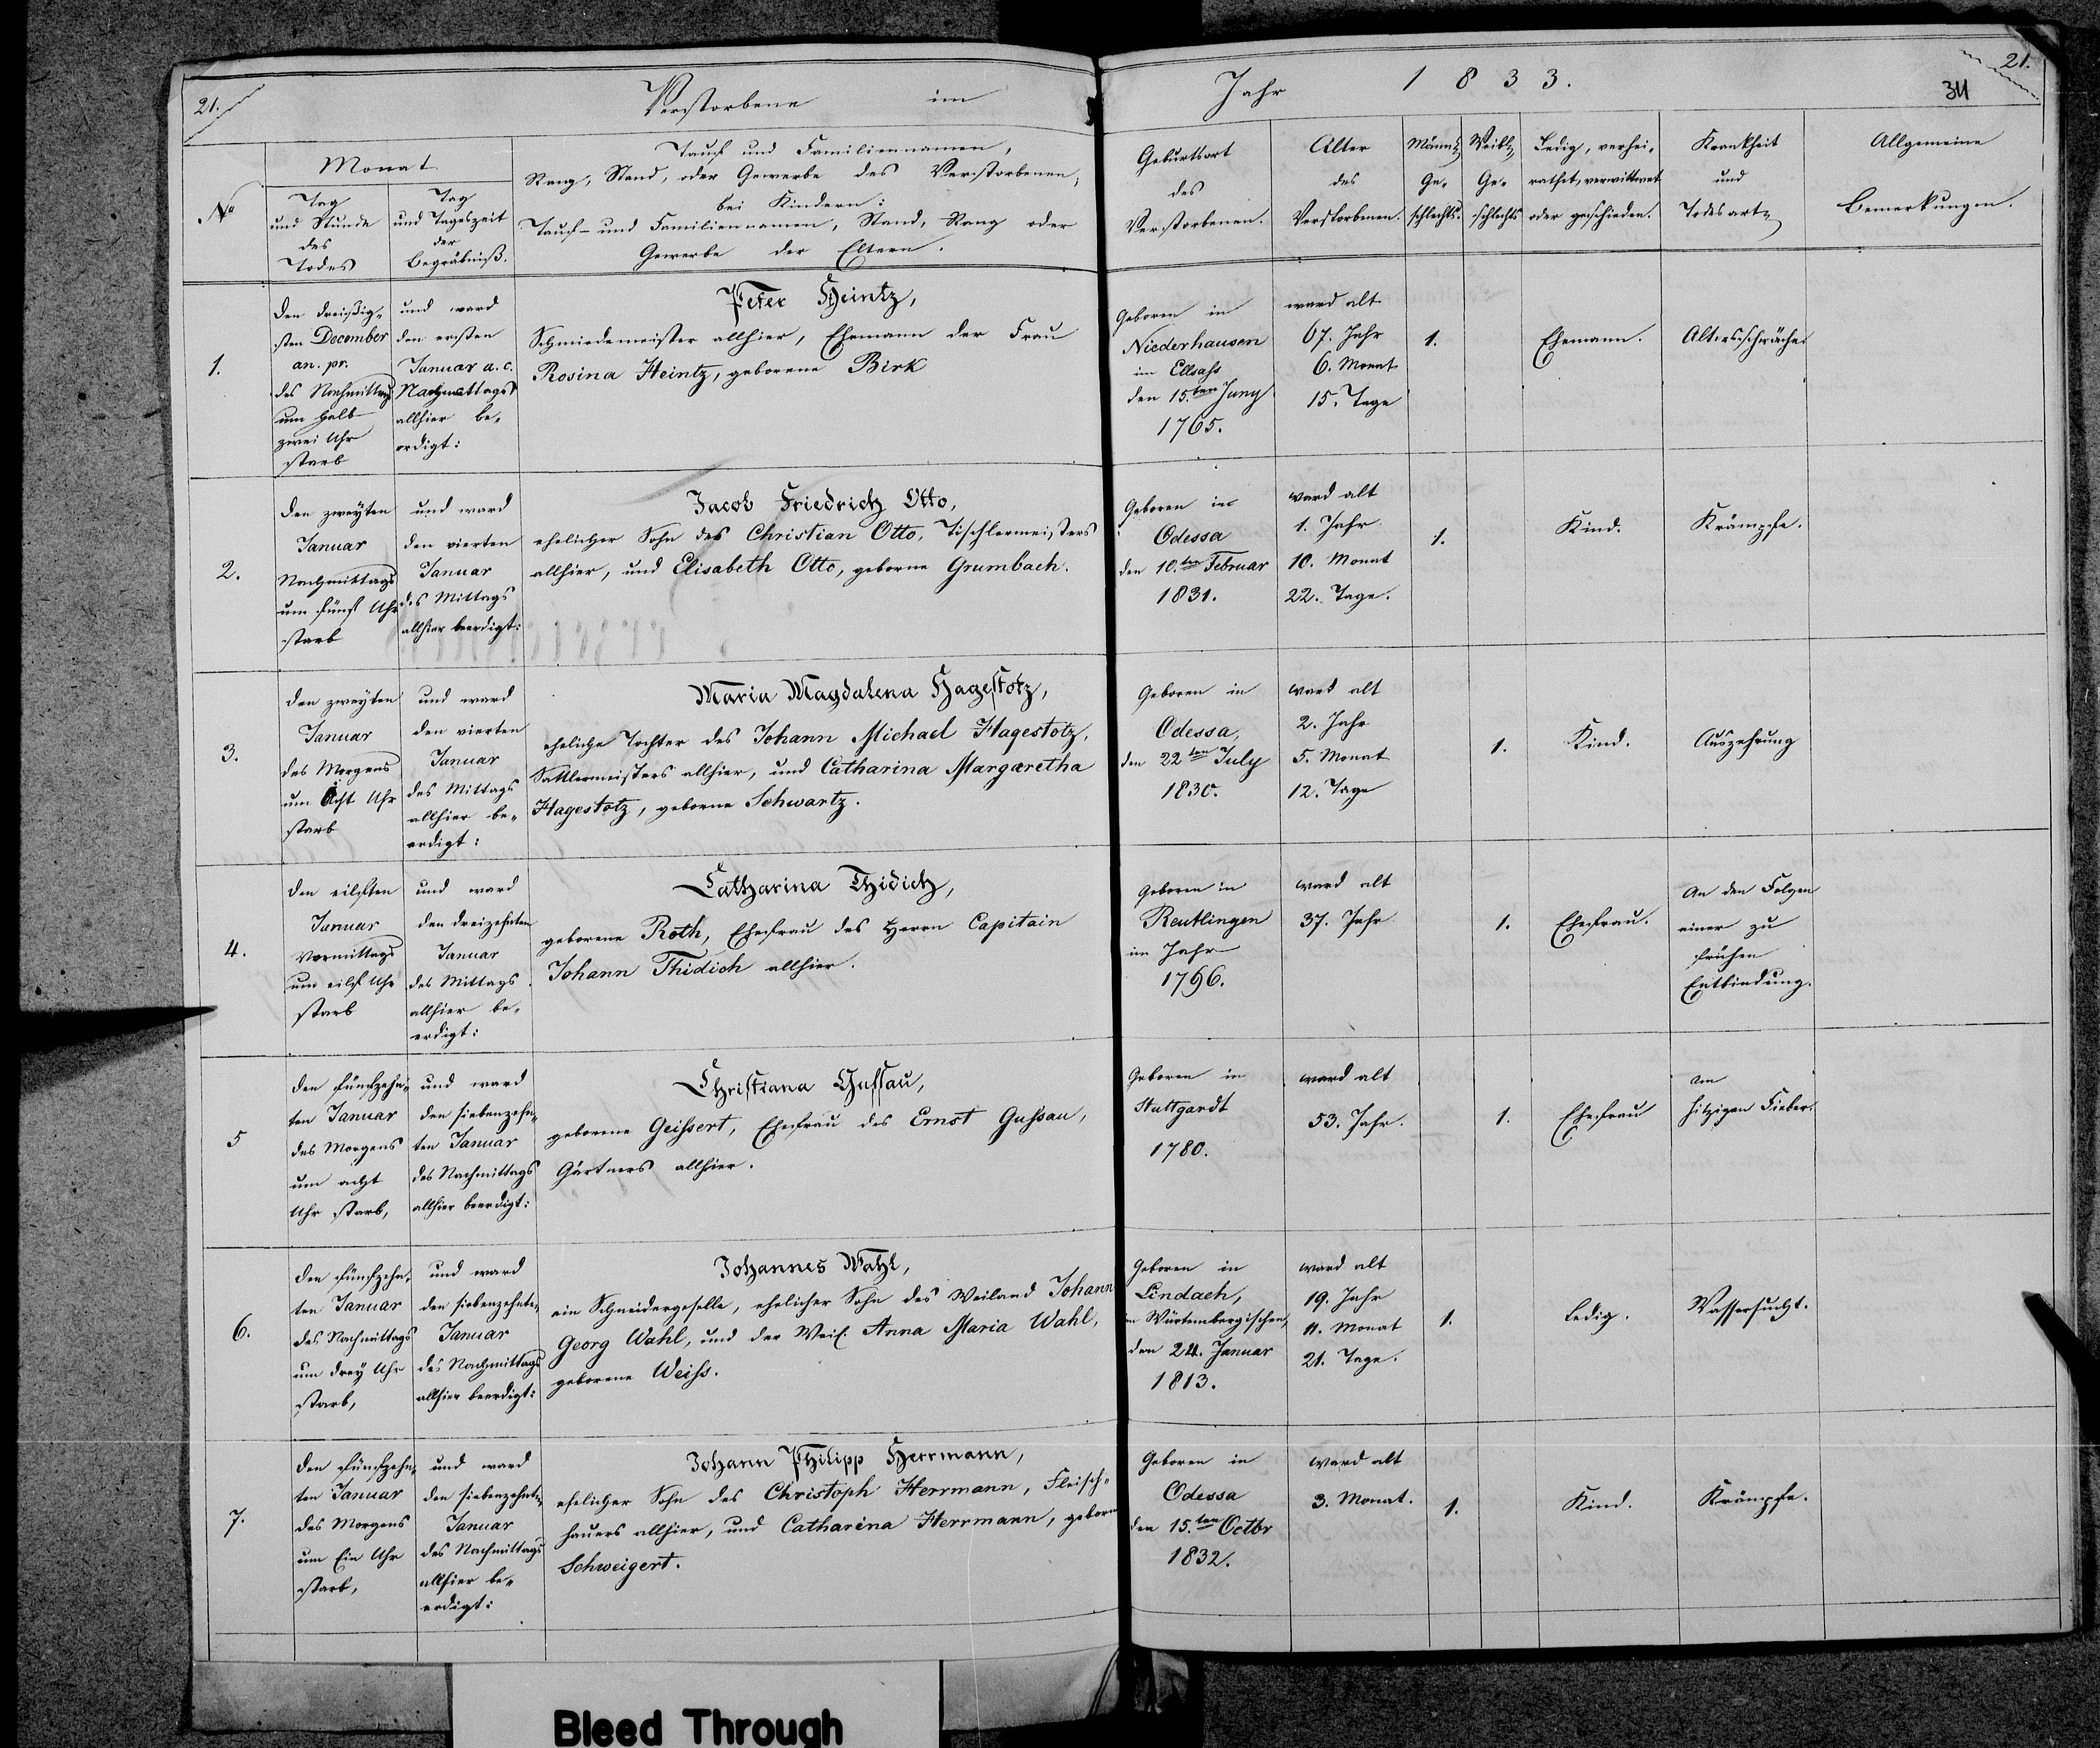 21.
Verstorbene im
Jahr 1833.
21.
311
No
Monat
Tag
und Stunde
des
Todes
Tag
und Tageszeit
der
Begräbniß.
Tauf und Familiennamen,
Rang, Stand, oder Gewerbe des Verstorbenen,
bei Kindern:
Tauf- und Familiennamen, Stand, Rang oder
Gewerbe der Eltern.
Geburtsort
des
Verstorbenen.
Alter
des
Verstorbenen.
Männl.
Ge-
schlechts.
Weibl.
Ge-
schlechts
Ledig, verhei-
rathet, verwittwet
oder geschieden.
Krankheit
und
Todesart
Allgemeine
Bemerkungen.
1.
den dreißig-
sten December
an. pr.
des Nachmittags
um halb
zwei Uhr
starb
und ward
den ersten
Januar a. c.
Nachmittags
allhier be-
erdigt:
Peter Heintz,
Schmiedemeister allhier, Ehemann der Frau
Rosina Heintz, geborene Birk
Geboren in
Niederhausen
im Ellsaß
den 15.ten Juny
1765.
ward alt
67. Jahr
6. Monat
15. Tage
1.
Ehemann.
Altersschwäche.
2.
den zweyten
Januar
Nachmittags
um fünf Uhr
starb
und ward
den vierten
Januar
des Mittags
allhier beerdigt:
Jacob Friedrich Otto,
ehelicher Sohn des Christian Otto, Tischlermeisters
allhier, und Elisabeth Otto, geborne Grumbach.
Geboren in
Odessa
den 10.ten Februar
1831.
ward alt
1. Jahr
10. Monat
22. Tage.
1.
Kind.
Krämpfe.
3.
den zweyten
Januar
des Morgens
um Acht Uhr
starb
und ward
den vierten
Januar
des Mittags
allhier be-
erdigt:
Maria Magdalena Hagestotz,
eheliche Tochter des Johann Michael Hagestotz,
Sattlermeisters allhier, und Catharina Margaretha
Hagestotz, geborne Schwartz.
Geboren in
Odessa,
den 22ten July
1830.
ward alt
2. Jahr
5. Monat
12. Tage
1.
Kind.
Auszehrung
4.
den eilften
Januar
Vormittags
um eilf Uhr
starb
und ward
den dreizehnten
Januar
des Mittags
allhier be-
erdigt:
Catharina Thidich,
geborene Roth, Ehefrau des Herrn Capitain
Johann Thidich allhier.
Geboren in
Reutlingen
im Jahr
1796.
ward alt
37. Jahr
1.
Ehefrau.
An den Folgen
einer zu
frühen
Entbindung.
5
den fünfzehn-
ten Januar
des Morgens
um acht
Uhr starb,
und ward
den siebenzehn-
ten Januar
des Nachmittags
allhier beerdigt:
Christiana Gußau,
geborene Geißert, Ehefrau des Ernst Gußau,
Gärtners allhier.
Geboren in
Stuttgardt
1780.
ward alt
53. Jahr.
1.
Ehefrau
am
hitzigen Fieber.
6.
den fünfzehn-
ten Januar
des Nachmittags
um drey Uhr
starb,
und ward
den siebenzehnten
Januar
des Nachmittags
allhier beerdigt:
Johannes Wahl,
ein Schneidergeselle, ehelicher Sohn des Weiland Johann
Georg Wahl, und der Weil. Anna Maria Wahl,
geborene Weiß.
Geboren in
Lindach,
im Würtembergischen,
den 24. Januar
1813.
ward alt
19. Jahr
11. Monat
21. Tage.
1.
ledig.
Wassersucht.
7.
den fünfzehn-
ten Januar
des Morgens
um Ein Uhr
starb,
und ward
den siebenzehnten
Januar
des Nachmittags
allhier be-
erdigt:
Johann Philipp Herrmann,
ehelicher Sohn des Christoph Herrmann, Fleisch-
hauers allhier, und Catharina Herrmann, geborne
Schweigert.
Geboren in
Odessa
den 15.ten Octbr
1832.
ward alt
3. Monat.
1.
Kind.
Krämpfe.
Bleed Through